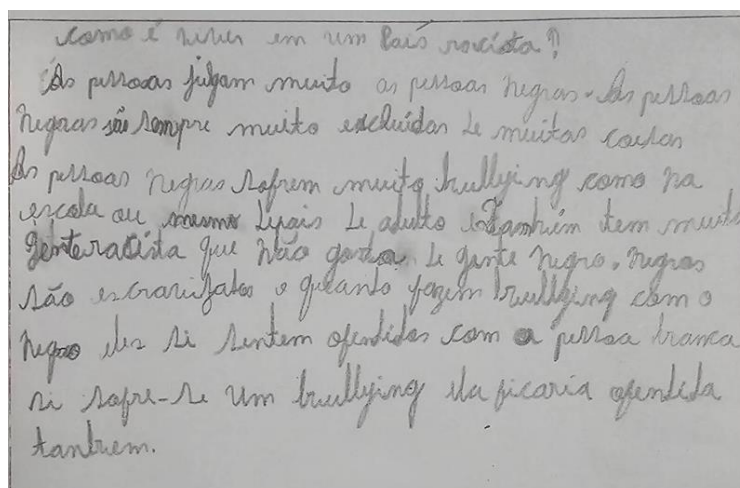 como é viver em um País racista?
As pessoas julgam muito as pessoas negras. As pessoas
negras são sempre muito excluídas de muitas coisas
As pessoas negras sofrem muito bullying como na
escola ou mesmo depois de adulto Também tem muita
gente racista que não gosta de gente negro. negros
são escravizados e quando fazem bullying com o
negro eles si sentem ofendidos com a pessoa branca
si sofre-se um bullying ela ficaria ofendida
tanbem.